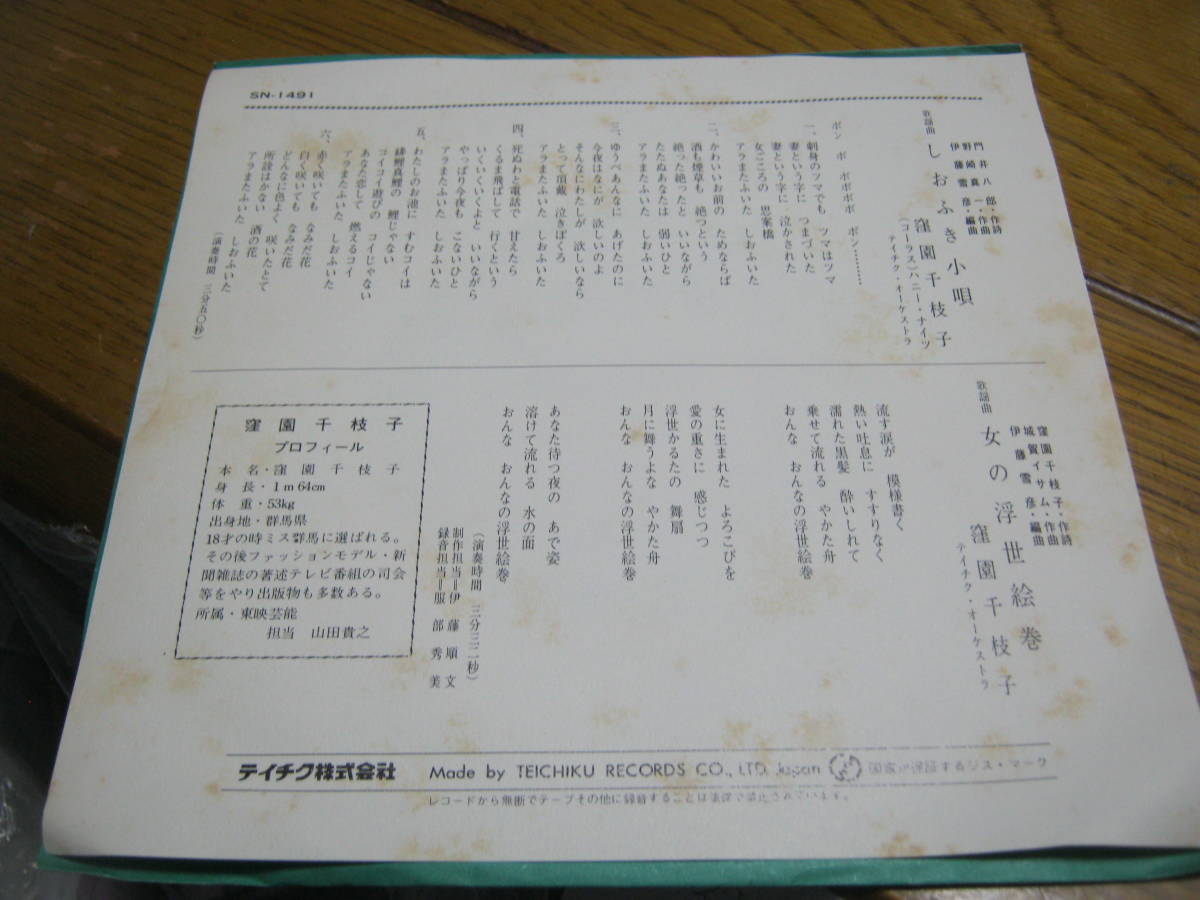 SN-1491
門井八郎・作詩
野崎真一・作曲
伊藤雪彦・編曲
歌謡曲
しおふき小唄
窪園千枝子
(コーラス)ハニー・ナイツ
テイチク・オーケストラ
ボン ボ ボボボ ボン…………
一、刺身のツマでも ツマはツマ
妻という字に つまづいた
妻という字に 泣かされた
女ごころの 思案橋
アラまたふいた しおふいた
二、かわいいお前の ためならば
酒も煙草も 絶つという
絶った絶ったと いいながら
たたぬあなたは 弱いひと
アラまたふいた しおふいた
三、ゆうべあんなに あげたのに
今夜はなにが 欲しいのよ
そんなにわたしが 欲しいなら
とって頂戴 泣きぼくろ
アラまたふいた しおふいた
四、死ぬわと電話で 甘えたら
くるま飛ばして 行くという
いくいくいくよと いいながら
やっぱり今夜も こないひと
アラまたふいた しおふいた
五、わたしのお池に すむコイは
緋鯉真鯉の 鯉じゃない
コイコイ遊びの コイじゃない
あなた恋して 燃えるコイ
アラまたふいた しおふいた
六、赤く咲いても なみだ花
白く咲いても なみだ花
どんなに色よく 咲いたとて
所詮はかない 酒の花
アラまたふいた しおふいた
(演奏時間 三分五〇秒)
窪園千枝子・作詩
城賀イサム・作曲
伊藤雪彦・編曲
歌謡曲
女の浮世絵巻
窪園千枝子
テイチク・オーケストラ
流す涙が 模様書く
熱い吐息に すすりなく
濡れた黒髪 酔いしれて
乗せて流れる やかた舟
おんな おんなの浮世絵巻
女に生まれた よろこびを
愛の重さに 感じつつ
浮世かるたの 舞扇
月に舞うよな やかた舟
おんな おんなの浮世絵巻
あなた待つ夜の あで姿
溶けて流れる 水の面
おんな おんなの浮世絵巻
(演奏時間 三分三二秒)
制作担当=伊藤順文
録音担当=服部秀美
窪園千枝子
プロフィール
本名・窪園千枝子
身長・1m64cm
体重・53kg
出身地・群馬県
18才の時ミス群馬に選ばれる。
その後ファッションモデル・新
聞雑誌の著述テレビ番組の司会
等をやり出版物も多数ある。
所属・東映芸能
担当 山田貴之
テイチク株式会社 Made by TEICHIKU RECORDS CO., LTD. Japan 国家が保証するジス・マーク
レコードから無断でテープその他に録音することは法律で禁止されています。